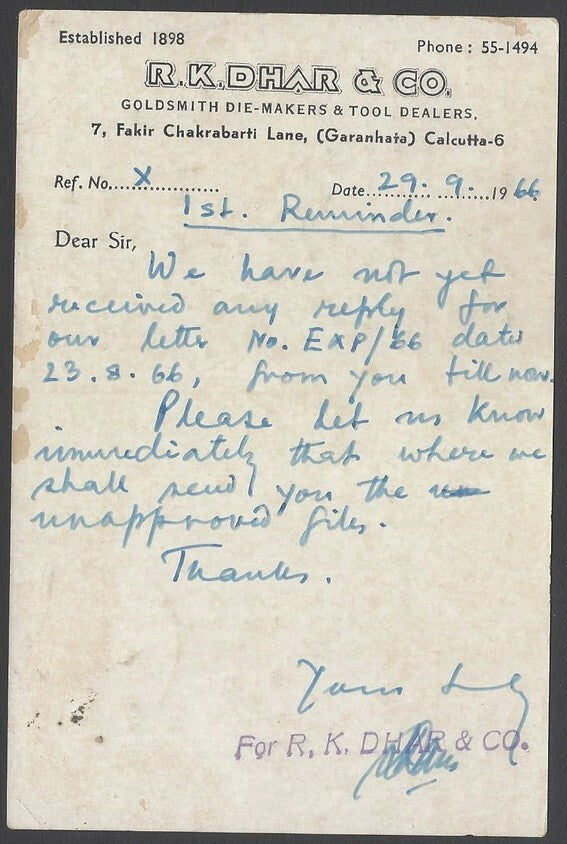 Established 1898
Phone : 55-1494
R.K.DHAR & CO.
GOLDSMITH DIE-MAKERS & TOOL DEALERS.
7, Fakir Chakrabarti Lane, (Garanhata) Calcutta-6
Ref. No....X............... Date...29. 9. ....1966
1st. Reminder.
Dear Sir,
We have not yet
received any reply for
our letter No. EXP/66 date
23.8.66, from you till now.
Please let us know
immediately that where we
shall send you the
unapproved files.
Thanks.
Yours
For R. K. DHAR & CO.